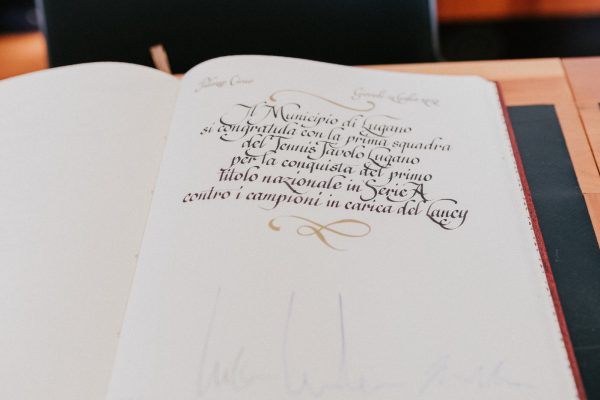 Palazzo Civico
Il Municipio di Lugano
si congratula con la prima squadra
del Tennis Tavolo Lugano
per la conquista del primo
titolo nazionale in Serie A
contro i campioni in carica del Lancy